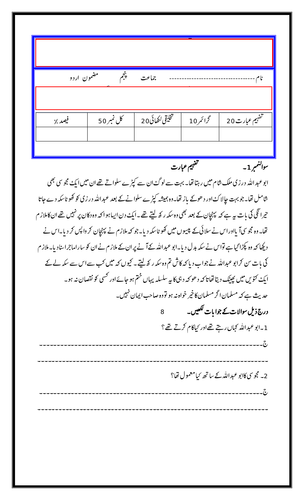 نام ------------------------ جماعت پنجم مضمون اردو
تفہیم عبارت 20 گرائمر 10 تخلیقی لکھائی 20 کل نمبر 50 فیصد %
سوال نمبر 1۔ تفہیم عبارت
ابو عبداللہ درزی ملک شام میں رہتا تھا۔ بہت سے لوگ ان سے کپڑے سلواتے تھے ان میں ایک مجوسی بھی
شامل تھا۔ جو بہت چالاک اور دھوکے باز تھا۔ وہ ہمیشہ کپڑے سلوانے کے بعد عبداللہ درزی کو کھوٹا سکہ دے جاتا
حیرانگی کی بات یہ ہے کہ پہچان کے بعد بھی وہ سکہ رکھ لیتے تھے۔ ایک دن ایسا ہوا کہ وہ دکان پر نہیں تھے ان کا ملازم
تھا۔ وہ مجوسی آیا اور اس نے سلائی کے پیسوں میں کھوٹا سکہ دیا۔ جو کہ ملازم نے پہچان کر واپس کر دیا۔ اس نے
دیکھا کہ وہ پکڑا گیا ہے تو اس نے سکہ بدل دیا۔ ابو عبداللہ کے آنے پر ان کے ملازم نے ان کو سارا ماجرا سنا دیا۔ ملازم
کی بات سن کر ابو عبداللہ نے جواب دیا کہ کاش تم وہ سکہ رکھ لیتے۔ کیوں کہ میں کب سے اس سے سکہ لے کے
ایک کنویں میں پھینک دیتا تھا تاکہ دھوکہ دہی کا یہ سلسلہ یہاں ختم ہو جائے اور کسی کو نقصان نہ ہو۔
حدیث ہے کہ مسلمان اگر مسلمان کا خیر خواہ نہ ہو تو وہ صاحب ایمان نہیں۔
درج ذیل سوالات کے جوابات لکھیں۔ 8
1۔ ابو عبداللہ کہاں رہتے تھے اور کیا کام کرتے تھے؟
ج۔------------------------
2۔ مجوسی کا ابو عبداللہ کے ساتھ کیا معمول تھا؟
ج۔------------------------